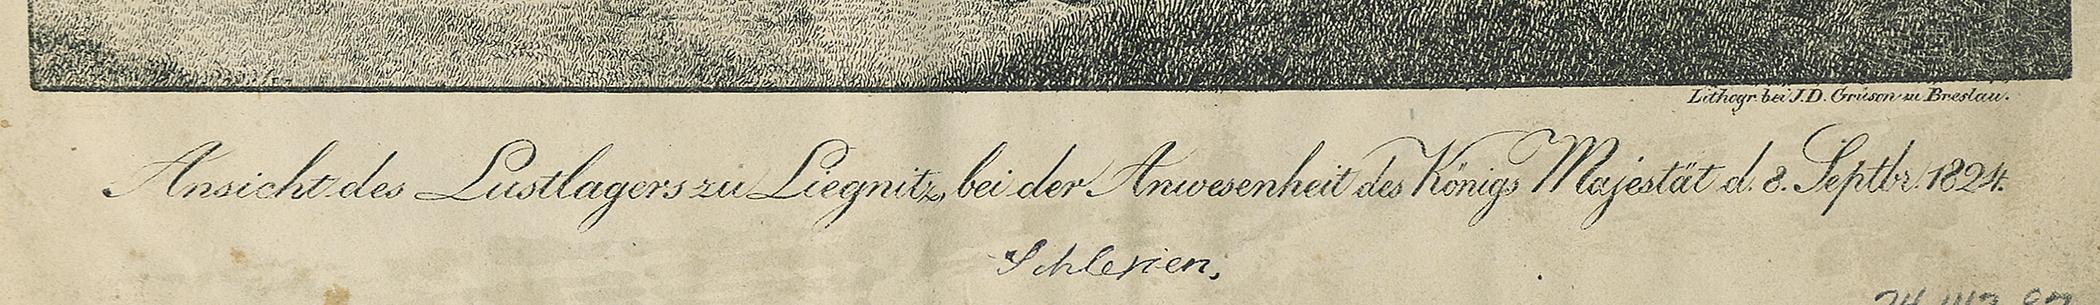 Lithogr bei J.D. Grüson zu Breslau.
Ansicht des Lustlagers zu Liegnitz, bei der Anwesenheit des Königs Majestät d. 8. Septbr 1824.
Schlesien.